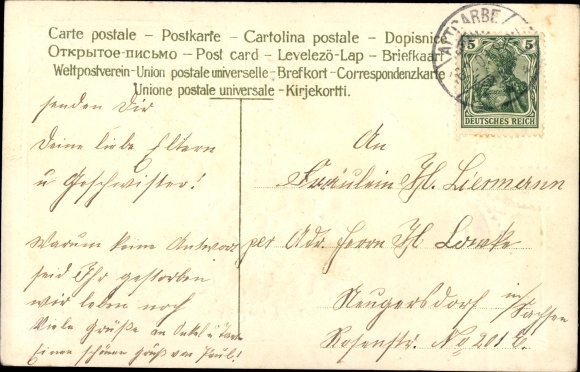 Carte postale – Postkarte – Cartolina postale – Dopisnice
Открытое-письмо – Post card – Levelező-Lap – Briefkaart
Weltpostverein-Union postale universelle-Brefkort-Correspondenzkarte
Unione postale universale -Kirjekortti.
ALTCARBE
5 5
DEUTSCHES REICH
senden Dir
Deine liebe Eltern
u Geschwister!
Warum keine Antwort
seid Ihr gestorben
wir leben noch
Viele Grüße an Onkel u Tante
Einen schönen Gruß von Paul!
An
Fräulein Th. Liermann
per Adr. Herrn Th Lowke
Neugersdorf in/Sachsen
Rosenstr. No 201 C.